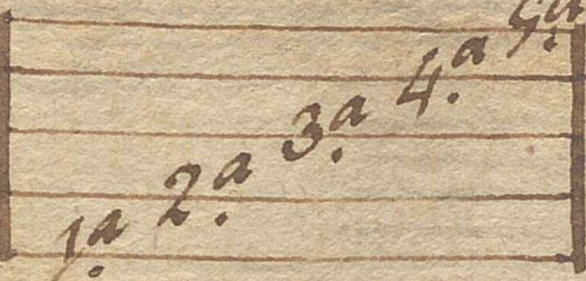 1.ª 2.ª 3.ª 4.ª 5.ª